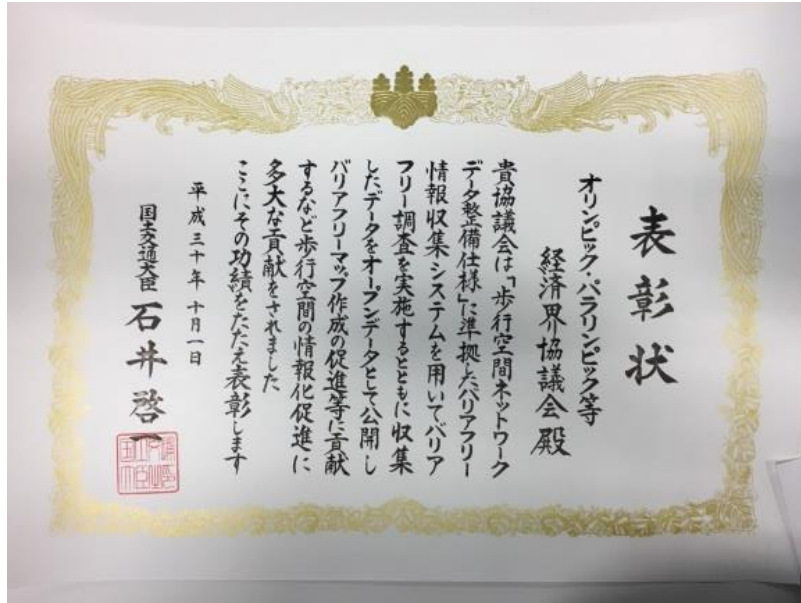 表彰状
オリンピック・パラリンピック等
経済界協議会殿
貴協議会は「歩行空間ネットワーク
データ整備仕様」に準拠したバリアフリー
情報収集システムを用いてバリア
フリー調査を実施するとともに収集
したデータをオープンデータとして公開し
バリアフリーマップ作成の促進等に貢献
するなど歩行空間の情報化促進に
多大な貢献をされました
ここにその功績をたたえ表彰します
平成三十年十月一日
国土交通大臣 石井啓一